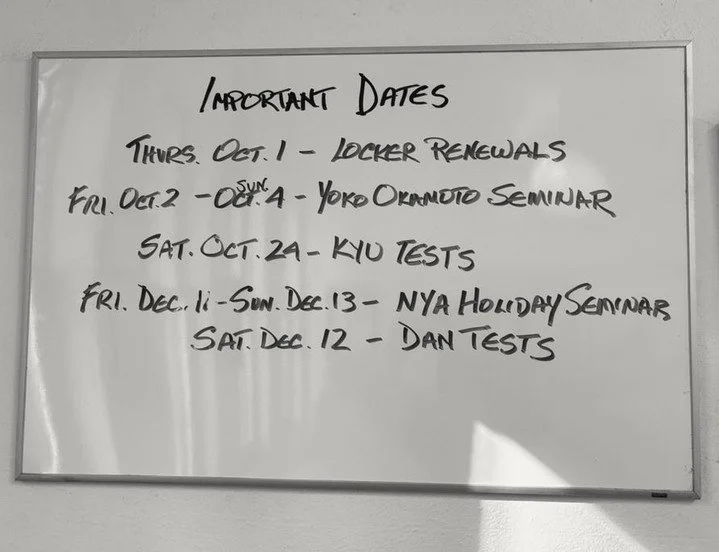 IMPORTANT DATES
THURS. OCT. 1 - LOCKER RENEWALS
FRI. OCT. 2 - OCT. SUN. 4 - YOKO OKAMOTO SEMINAR
SAT. OCT. 24 - KYU TESTS
FRI. DEC. 11 - SUN. DEC. 13 - NYA HOLIDAY SEMINAR
SAT. DEC. 12 - DAN TESTS